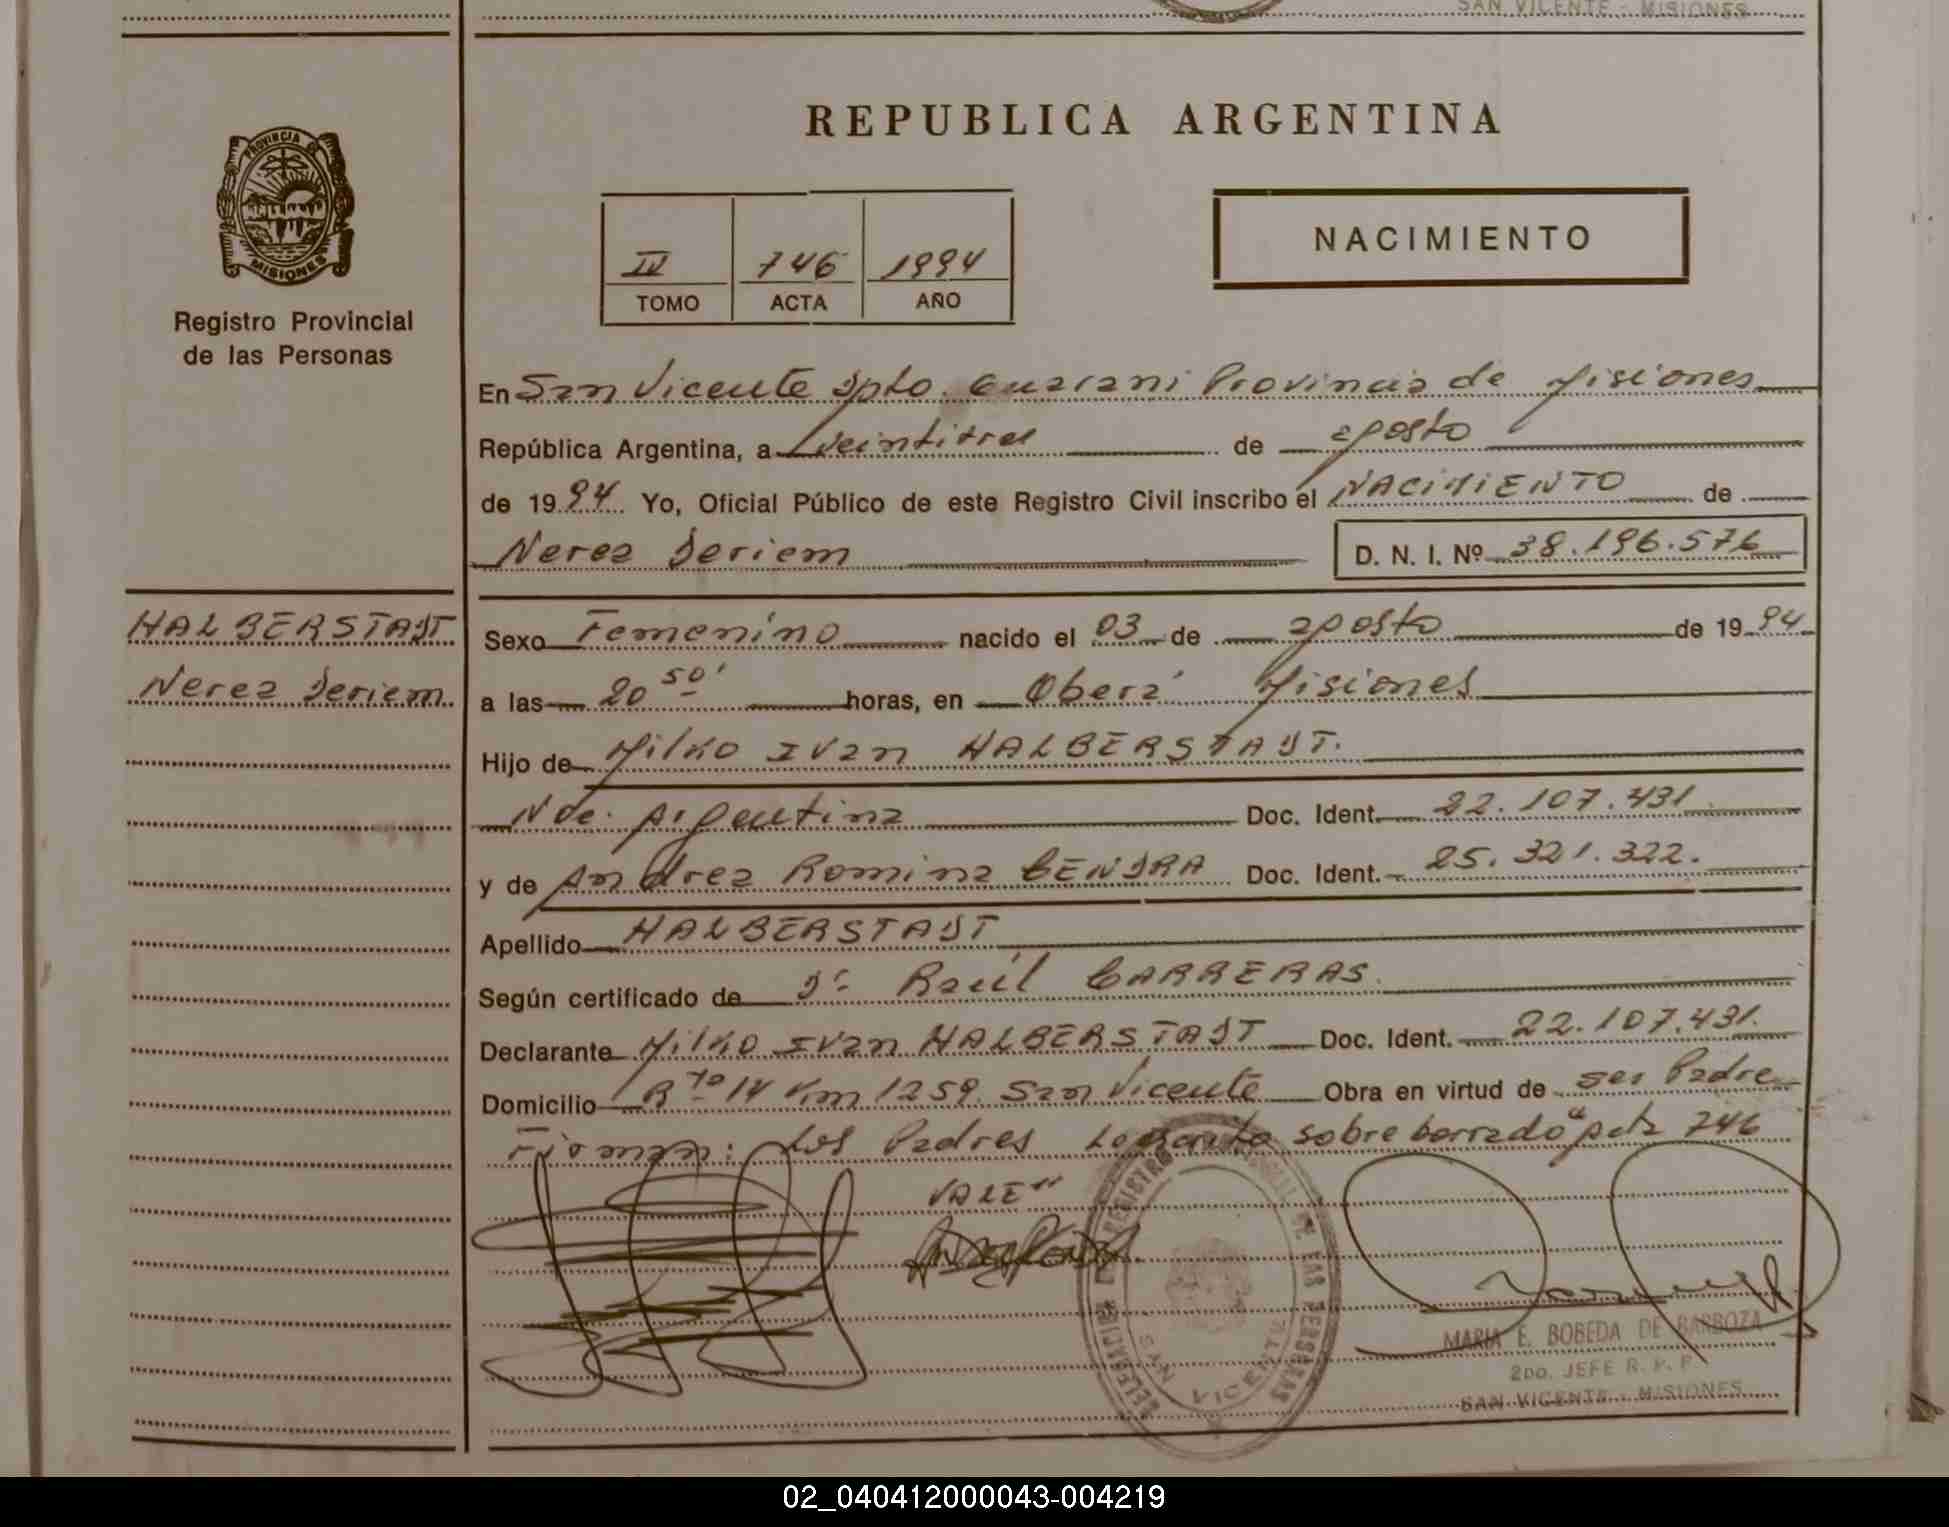 SAN VICENTE - MISIONES
REPUBLICA ARGENTINA
PROVINCIA DE
MISIONES
Registro Provincial
de las Personas
IV 746 1994
TOMO ACTA AÑO
NACIMIENTO
En San Vicente Dpto. Guarani Provincia de Misiones
República Argentina, a veintitres de agosto
de 1994 Yo, Oficial Público de este Registro Civil inscribo el NACIMIENTO de
Nerea Deriem D. N. I. Nº 38.196.576
HALBERSTADT
Nerea Deriem
Sexo Femenino nacido el 03 de agosto de 1994
a las 20 50' horas, en Oberá Misiones
Hijo de Milko Ivan HALBERSTADT.
Nac. Argentina Doc. Ident. 22.107.431
y de Andrea Romina CENDRA Doc. Ident. 25.321.322.
Apellido HALBERSTADT
Según certificado de Dr. Raúl CARRERAS.
Declarante Milko Ivan HALBERSTADT Doc. Ident. 22.107.431.
Domicilio Rta 14 Km 1259. San Vicente Obra en virtud de ser Padre
Firman: Los Padres Lo escrito sobre borrado "acta 746
VALE"
DELEGACION REGISTRO DE LAS PERSONAS
SAN VICENTE
MARIA E. BOBEDA DE BARBOZA
2DO. JEFE R. P. P.
SAN VICENTE - MISIONES
02_040412000043-004219